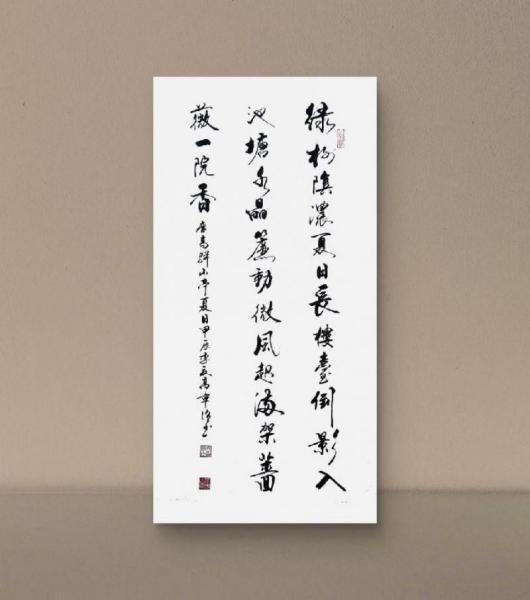 绿树陰濃夏日長樓臺倒影入
池塘水晶簾動微風起滿架薔
薇一院香
唐高駢山亭夏日甲辰書